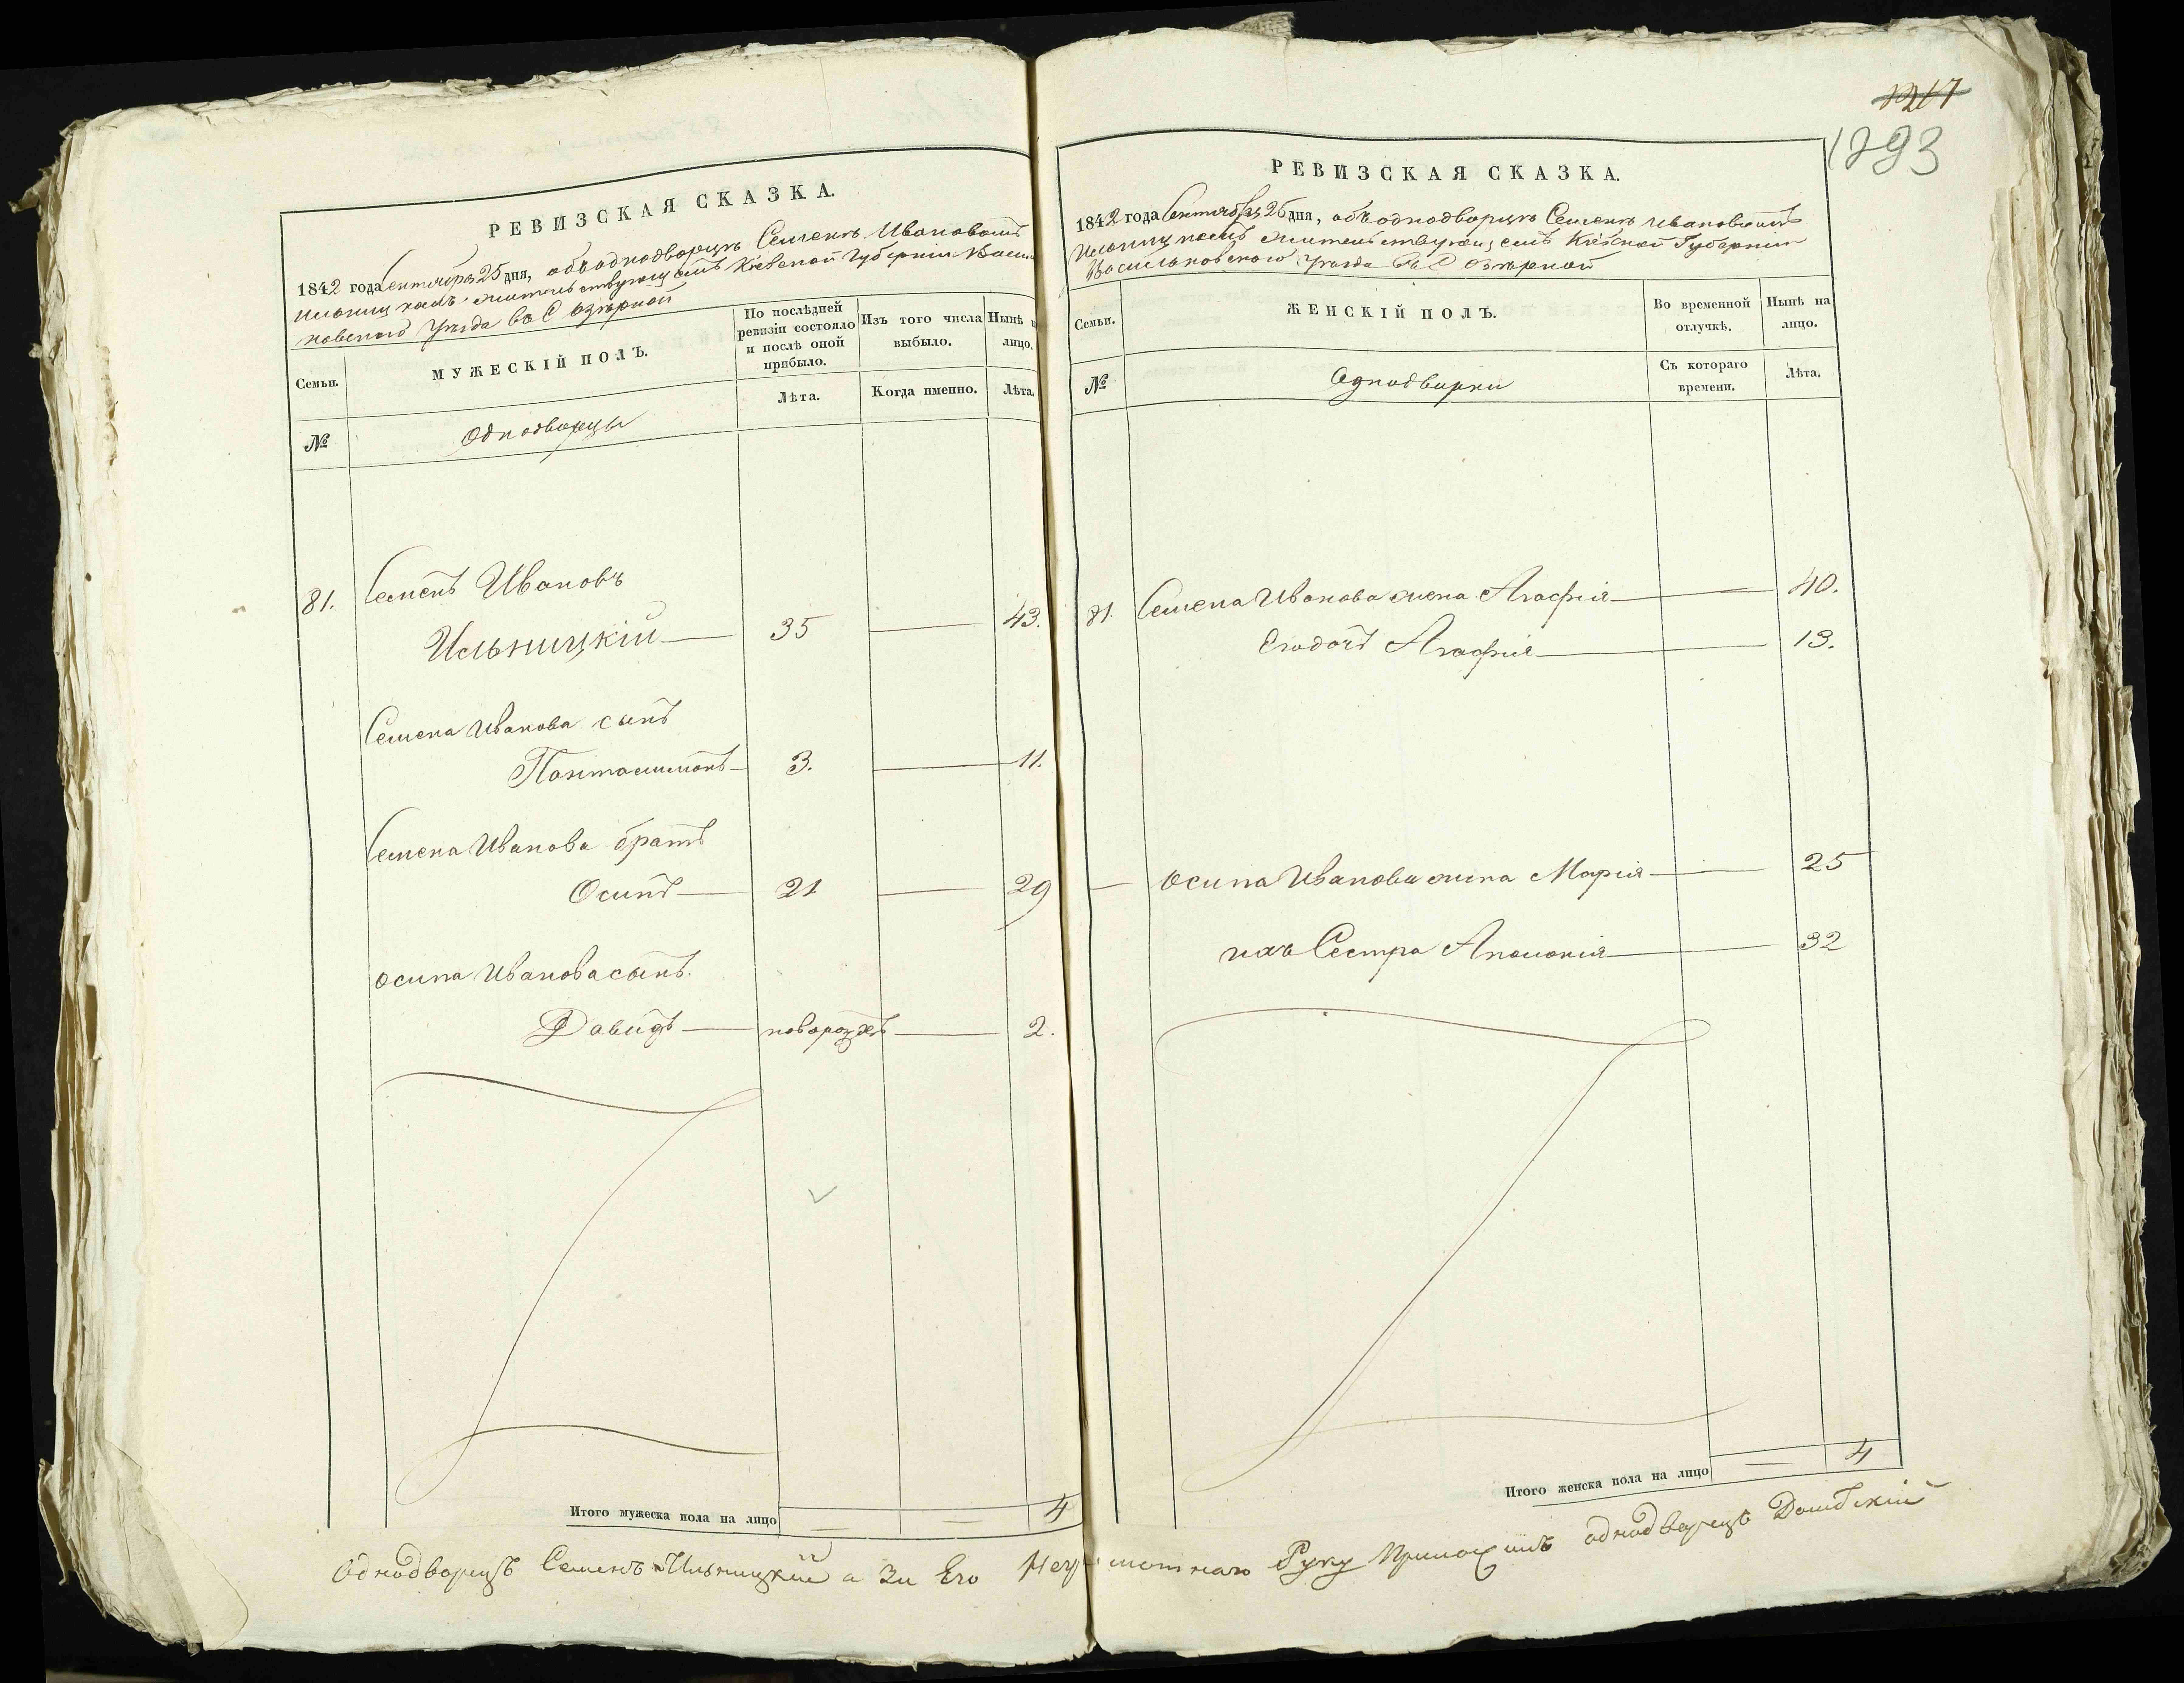 РЕВИЗСКАЯ СКАЗКА.
1842 года Сентября 25 дня, объ однодворцѣ Семенѣ Ивановомъ
Ильницкомъ жительствующемъ Кіевской Губерніи Василь
ковскаго Уѣзда въ С Озѣрной
Семьи.
МУЖЕСКІЙ ПОЛЪ.
По послѣдней ревизіи состояло и послѣ оной прибыло.
Изъ того числа выбыло.
Нынѣ лицо.
№
Однодворцы
Лѣта.
Когда именно.
Лѣта.
81. Семенъ Ивановъ
Ильницкій 35 43.
Семена Иванова сынъ
Пантамимонъ 3. 11.
Семена Иванова братъ
Осипъ 21 29
Осипа Иванова сынъ.
Давидъ новорожд 2.
Итого мужеска пола на лицо 4
1217
1293
РЕВИЗСКАЯ СКАЗКА.
1842 года Сентября 25 дня, объ однодворцѣ Семенѣ Ивановомъ
Ильницкомъ жительствующемъ Кіевской Губерніи
Васильковского Уѣзда въ С Озѣрной
Семьи.
ЖЕНСКІЙ ПОЛЪ.
Во временной отлучкѣ.
Нынѣ на лицо.
№
Однодворки
Съ котораго времени.
Лѣта.
81. Семена Иванова жена Агафія 40.
Его дочь Агафія 13.
Осипа Иванова жена Марія 25
ихъ Сестра Аполонія 32
Итого женска пола на лицо 4
Однодворецъ Семенъ Ильницкій а За Его Неграмотнаго Руку Приложилъ однодворецъ